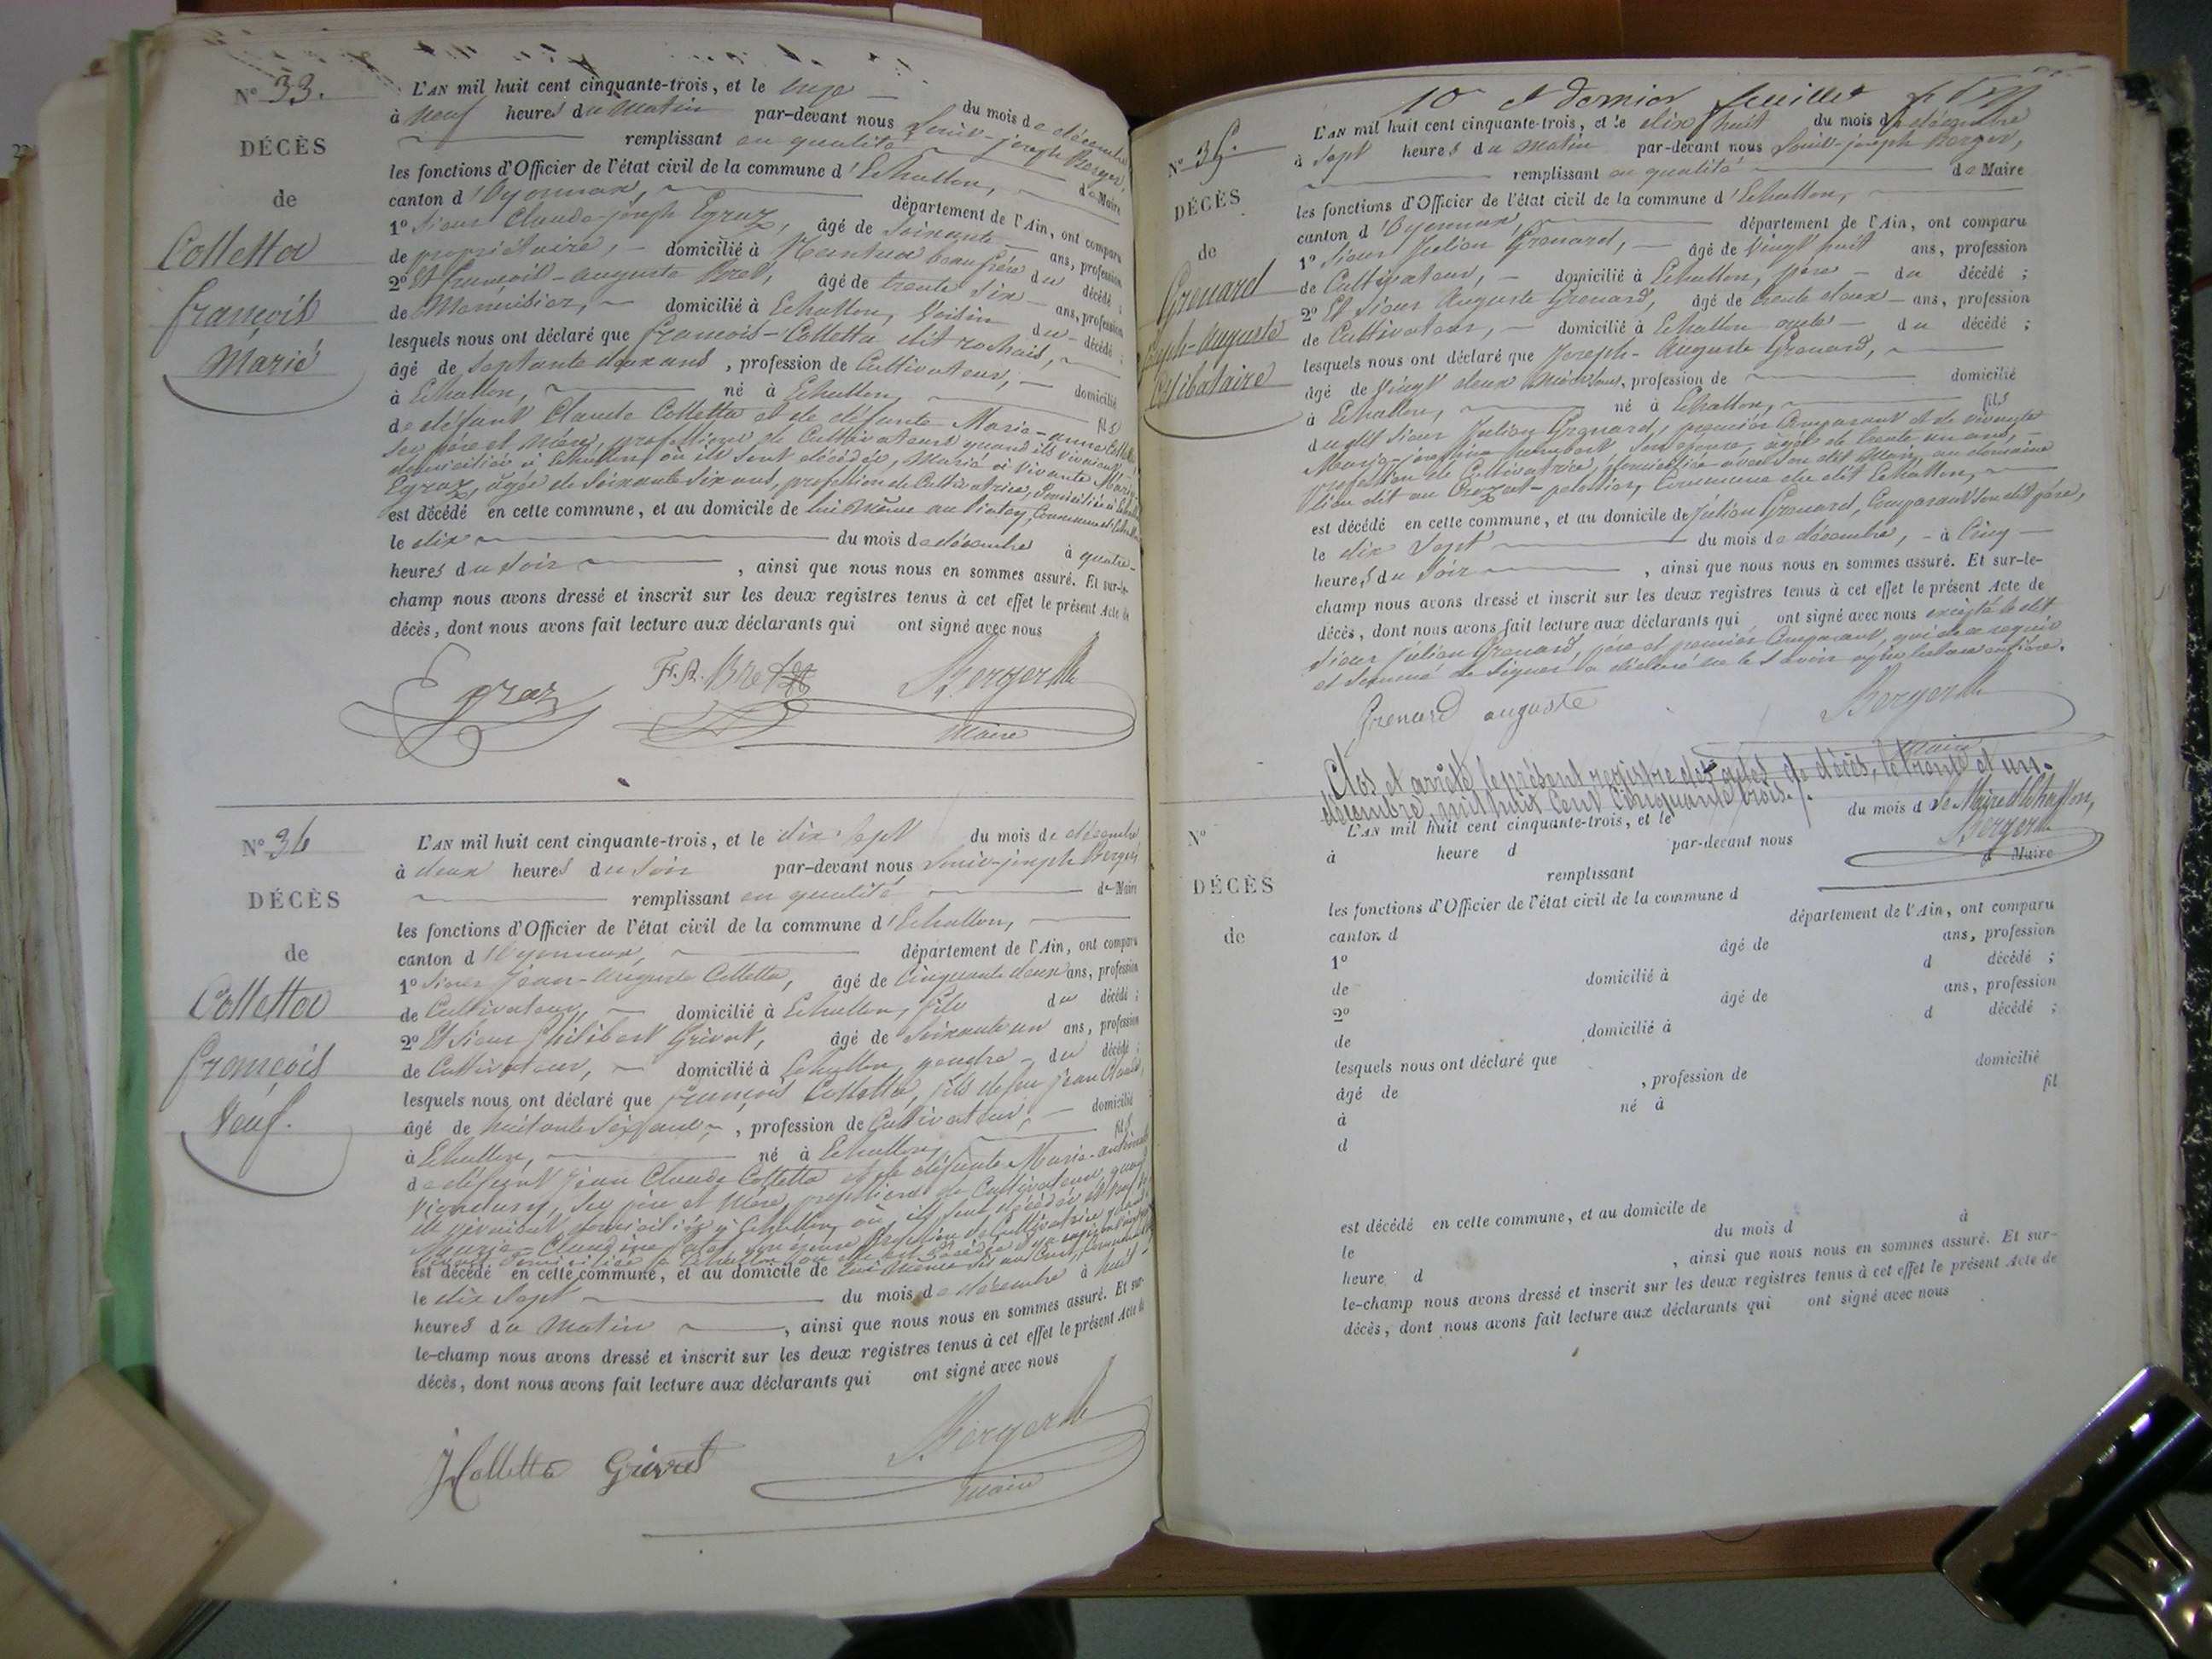 N° 33.
DÉCÈS
de
Colletta
françois
Marié
L'AN mil huit cent cinquante-trois, et le onze du mois de décembre
à neuf heures du matin par-devant nous Louis-joseph Berger,
remplissant en qualité de Maire
les fonctions d'Officier de l'état civil de la commune d'Echallon,
canton d'Oyonnax, département de l'Ain, ont comparu
1° Sieur Claude-joseph Egraz, âgé de soixante ans, profession
de propriétaire, domicilié à Nantua beau frère du décédé ;
2° Et françois-auguste Bret, âgé de trente six ans, profession
de Menuisier, domicilié à Echallon, Voisin du décédé ;
lesquels nous ont déclaré que françois-Colletta dit rochais,
âgé de septante deux ans, profession de Cultivateur, domicilié
à Echallon, né à Echallon, fils
de défunt Claude Colletta et de défunte Marie-anne
ses père et mère, profession de Cultivateurs quand ils vivaient
domiciliés à Echallon où ils sont décédés, Marié à vivante
Egraz, âgée de soixante six ans, profession de Cultivatrice, domiciliée à
est décédé en cette commune, et au domicile de lui même au
le dix du mois de décembre à quatre
heures du soir, ainsi que nous nous en sommes assuré. Et sur-le-
champ nous avons dressé et inscrit sur les deux registres tenus à cet effet le présent Acte de
décès, dont nous avons fait lecture aux déclarants qui ont signé avec nous
Egraz F. A. Bret Berger
Maire
N° 34
DÉCÈS
de
Colletta
françois
Veuf.
L'AN mil huit cent cinquante-trois, et le dix sept du mois de décembre
à deux heures du soir par-devant nous Louis-joseph Berger
remplissant en qualité de Maire
les fonctions d'Officier de l'état civil de la commune d'Echallon,
canton d'Oyonnax, département de l'Ain, ont comparu
1° Sieur jean-auguste Colletta, âgé de Cinquante deux ans, profession
de Cultivateur, domicilié à Echallon, fils du décédé ;
2° Et Sieur Philibert Grivat, âgé de soixante un ans, profession
de Cultivateur, domicilié à Echallon gendre du décédé ;
lesquels nous ont déclaré que françois Colletta, fils de feu jean Claude,
âgé de huitante six ans, profession de Cultivateur, domicilié
à Echallon, né à Echallon, fils
de défunt jean Claude Colletta et de défunte Marie-
ses père et mère, profession de Cultivateurs, quand
ils vivaient domiciliés à Echallon où ils sont décédés et veuf
Claudine son épouse profession de Cultivatrice
est décédé en cette commune, et au domicile de lui même
le dix sept du mois de décembre à huit
heures du matin, ainsi que nous nous en sommes assuré. Et sur-
le-champ nous avons dressé et inscrit sur les deux registres tenus à cet effet le présent Acte de
décès, dont nous avons fait lecture aux déclarants qui ont signé avec nous
J Colletta Grivat Berger
Maire
10e et dernier feuillet
N° 35.
DÉCÈS
de
Grenard
joseph-auguste
Célibataire
L'AN mil huit cent cinquante-trois, et le dix huit du mois de décembre
à sept heures du matin par-devant nous Louis-joseph Berger,
remplissant en qualité de Maire
les fonctions d'Officier de l'état civil de la commune d'Echallon,
canton d'Oyonnax, département de l'Ain, ont comparu
1° Sieur Julien Grenard, âgé de vingt huit ans, profession
de Cultivateur, domicilié à Echallon, père du décédé ;
2° Et Sieur Auguste Grenard, âgé de trente deux ans, profession
de Cultivateur, domicilié à Echallon oncle du décédé ;
lesquels nous ont déclaré que Joseph-Auguste Grenard,
âgé de vingt deux, profession de domicilié
à Echallon, né à Echallon, fils
du dit sieur Julien Grenard, premier Comparant et de vivante
Marie-josephine son épouse, âgée de trente un ans,
profession de Cultivatrice, domiciliée avec son dit Mari, au domaine
lieu dit au Crozat-, Commune du dit Echallon,
est décédé en cette commune, et au domicile de Julien Grenard, Comparant son dit père,
le dix sept du mois de décembre, à Cinq
heures du soir, ainsi que nous nous en sommes assuré. Et sur-le-
champ nous avons dressé et inscrit sur les deux registres tenus à cet effet le présent Acte de
décès, dont nous avons fait lecture aux déclarants qui ont signé avec nous excepté le dit
sieur Julien Grenard, père et premier Comparant, qui de ce requis
et sommé de signer a déclaré ne le savoir après lecture entière.
Grenard auguste Berger
Maire
Clos et arrêté le présent registre des actes de décès, le trente et un
décembre, mil huit Cent Cinquante trois./.
Le Maire d'Echallon,
Berger
N°
DÉCÈS
de
L'AN mil huit cent cinquante-trois, et le du mois d
à heure d par-devant nous
remplissant d Maire
les fonctions d'Officier de l'état civil de la commune d
canton d département de l'Ain, ont comparu
1° âgé de ans, profession
de domicilié à d décédé ;
2° âgé de ans, profession
de domicilié à d décédé ;
lesquels nous ont déclaré que
âgé de , profession de domicilié
à né à fil
d
est décédé en cette commune, et au domicile de
le du mois d à
heure d , ainsi que nous nous en sommes assuré. Et sur-
le-champ nous avons dressé et inscrit sur les deux registres tenus à cet effet le présent Acte de
décès, dont nous avons fait lecture aux déclarants qui ont signé avec nous